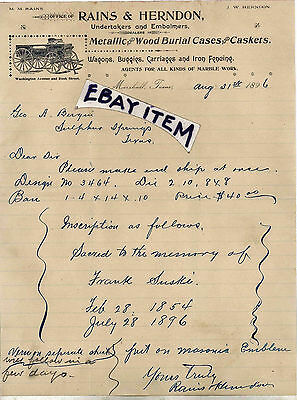 M. M. RAINS
J. W. HERNDON.
OFFICE OF
RAINS & HERNDON,
Undertakers and Embalmers,
DEALERS
Metallic and Wood Burial Cases and Caskets.
Wagons, Buggies, Carriages and Iron Fencing.
AGENTS FOR ALL KINDS OF MARBLE WORK.
Washington Avenue and Rusk Street.
Marshall, Texas, Aug 21st 1896
EBAY ITEM
Geo A.
Sulphur Springs
Texas.
Dear Sir
Please make and ship at once
Design No 3464. Die 2 10, 8x8
Base 1-4 x 1-4 x 10 Price $40.00
Inscription as follows.
Sacred to the memory of
Frank Suske.
Feb 28. 1854
July 28. 1896
Verse on separate sheet put on masonic Emblem
will follow in a
few days.
Yours Truly
Rains & Herndon